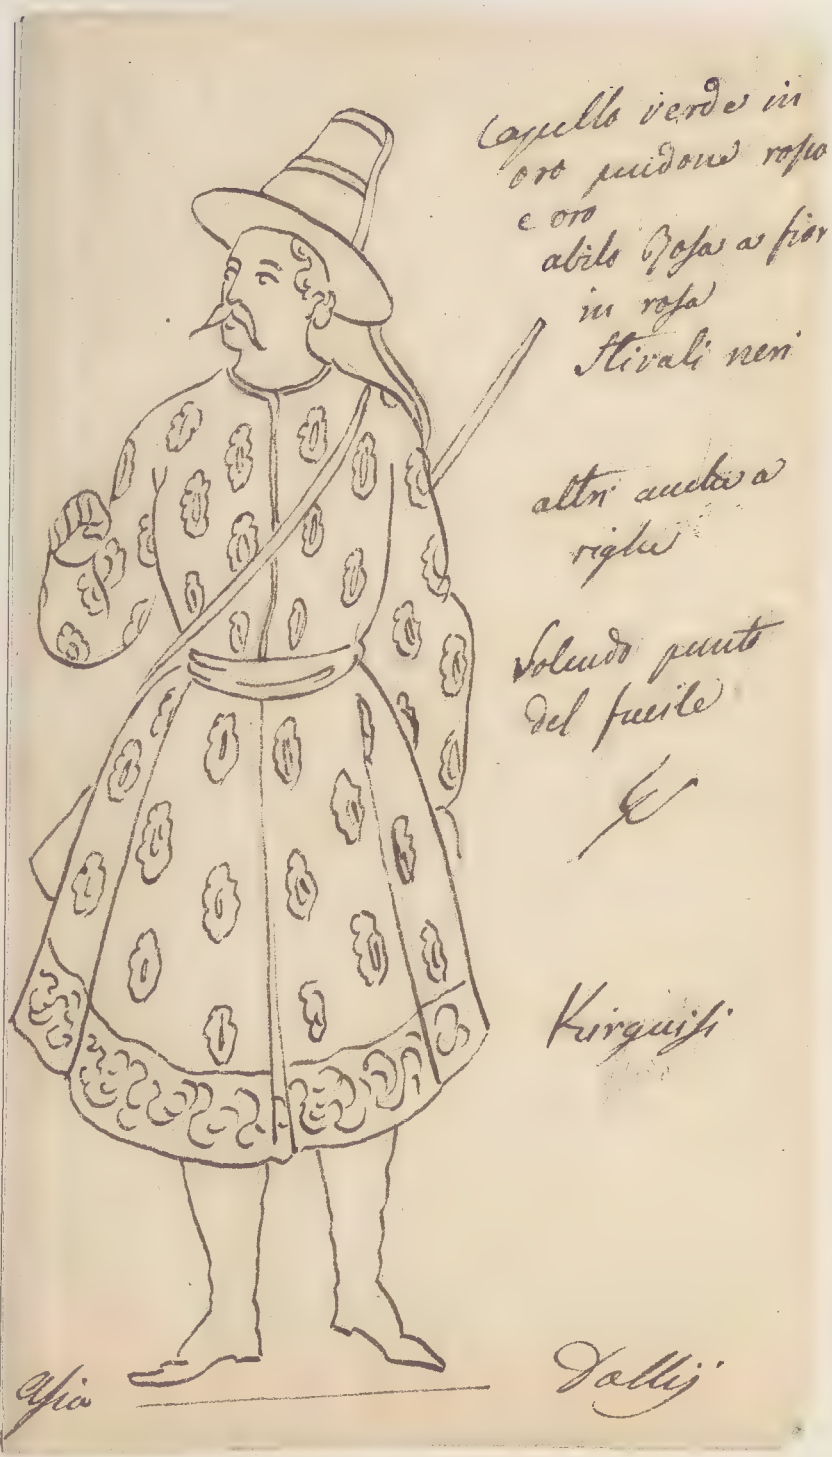 Capello verde in
oro pendone rosso
e oro
abito Rosa a fior
in rosa
Stivali neri
altri anche a
righe
Volendo punto
del fucile
Kirguisi
Asia
Dallij